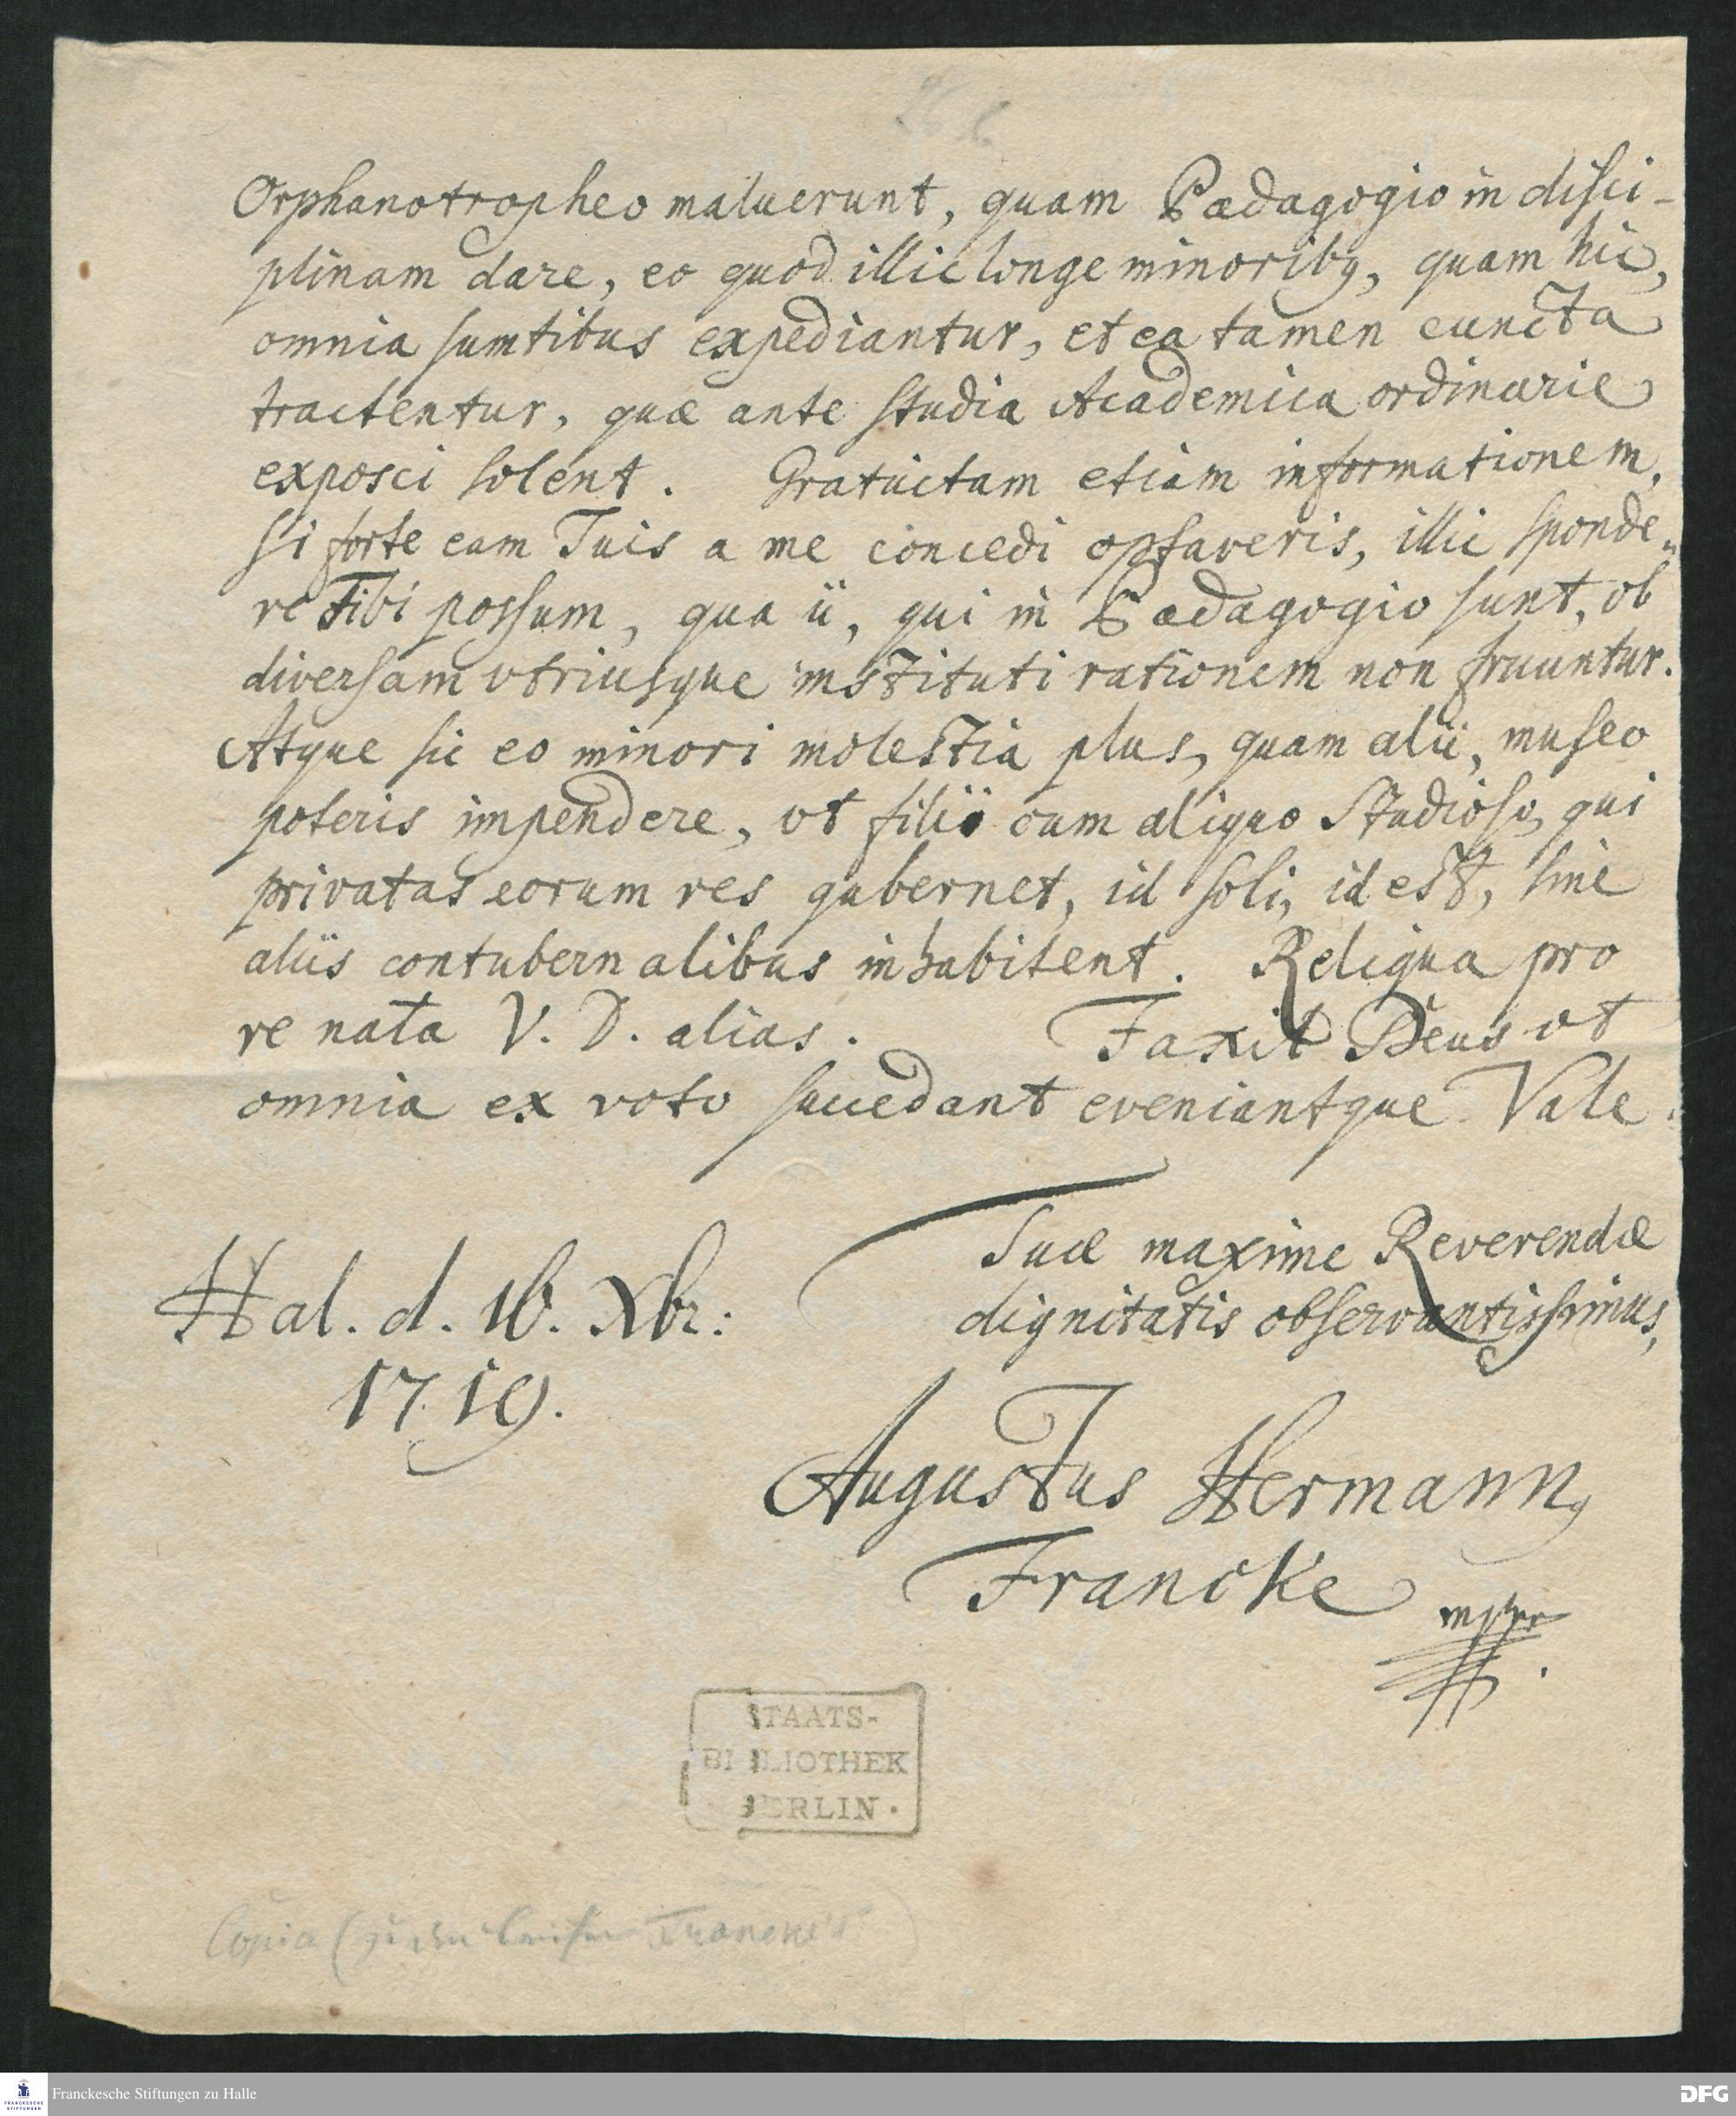 Orphanotropheo maluerunt, quam Pædagogio in disci-
plinam dare, eo quod illic longe minoribꝫ, quam hic,
omnia sumtibus expediantur, et ea tamen cuncta
tractentur, quæ ante studia Academica ordinarie
exposci solent. Gratuitam etiam informationem,
si forte eam Tuis a me concedi optaveris, illic sponde„
re Tibi possum, qua ii, qui in Pædagogio sunt, ob
diversam vtriusque instituti rationem non fruuntur.
Atque sic eo minori molestia plus, quam alii, museo
poteris impendere, vt filii cum aliquo Studioso, qui
privatas eorum res gubernet, id soli, id est, sine
aliis contubernalibus inhabitent. Reliqua pro
re nata V. D. alias. Faxit Deus vt
omnia ex voto succedant eveniantque Vale.
Tuæ maxime Reverendæ
dignitatis observantissimus,
Hal. d. 16. Xbr:
1719.
Augustus Hermannꝰ
Francke
mppr
STAATS-
BIBLIOTHEK
BERLIN.
Copia (
Francke's )
Franckesche Stiftungen zu Halle
FRANCKESCHE
STIFTUNGEN
DFG